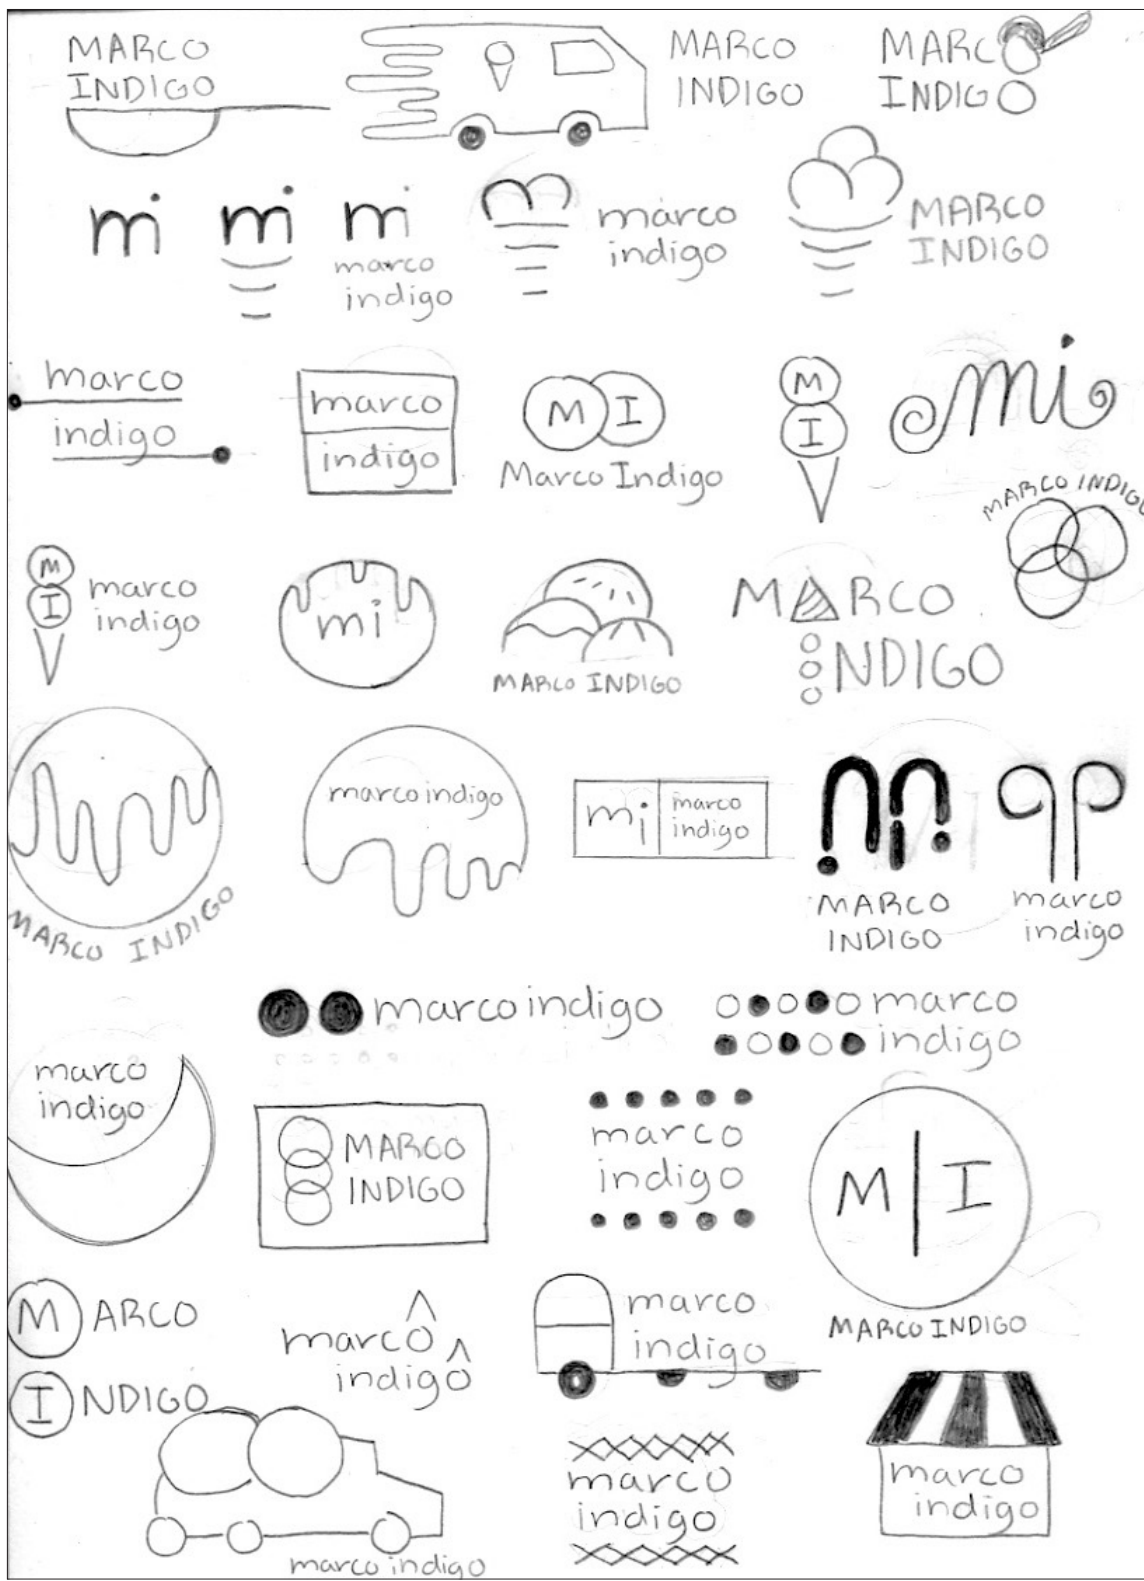 MARCO
INDIGO
MARCO
INDIGO
MARCO
INDIGO
mi
mi
mi
marco
indigo
marco
indigo
MARCO
INDIGO
marco
indigo
marco
indigo
M I
Marco Indigo
M
I
mi
MARCO INDIGO
M
I
marco
indigo
mi
MARCO INDIGO
MARCO
INDIGO
MARCO INDIGO
marco indigo
mi
marco
indigo
mi
MARCO
INDIGO
marco
indigo
marco indigo
marco
indigo
marco
indigo
MARCO
INDIGO
marco
indigo
M | I
MARCO INDIGO
MARCO
INDIGO
marco
indigo
marco
indigo
marco indigo
marco
indigo
marco
indigo